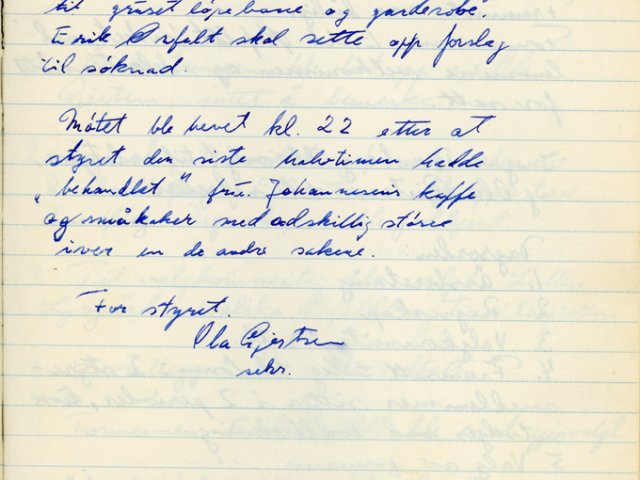 til gruset löpebane og garderobe.
Erik Ørfalt skal sette opp forslag
til söknad.
Mötet ble hevet kl. 22 etter at
styret den siste halvtimen hadde
"behandlet" fru. Johannesens kaffe
og småkaker med adskillig större
iver en de andre sakene.
For styret.
Ola Gjertsen
sekr.